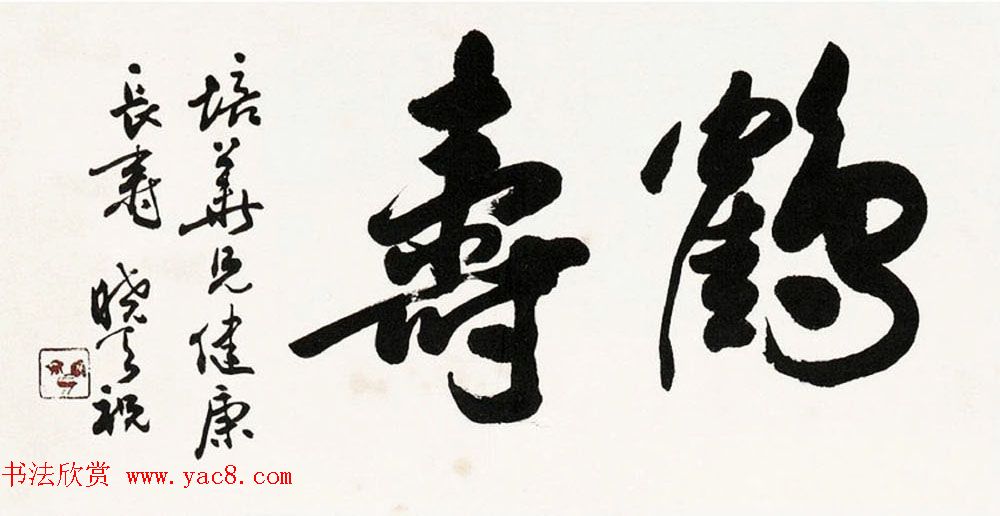 鶴壽
培華兄健康
長壽 曉雲祝
书法欣赏 www.yac8.com